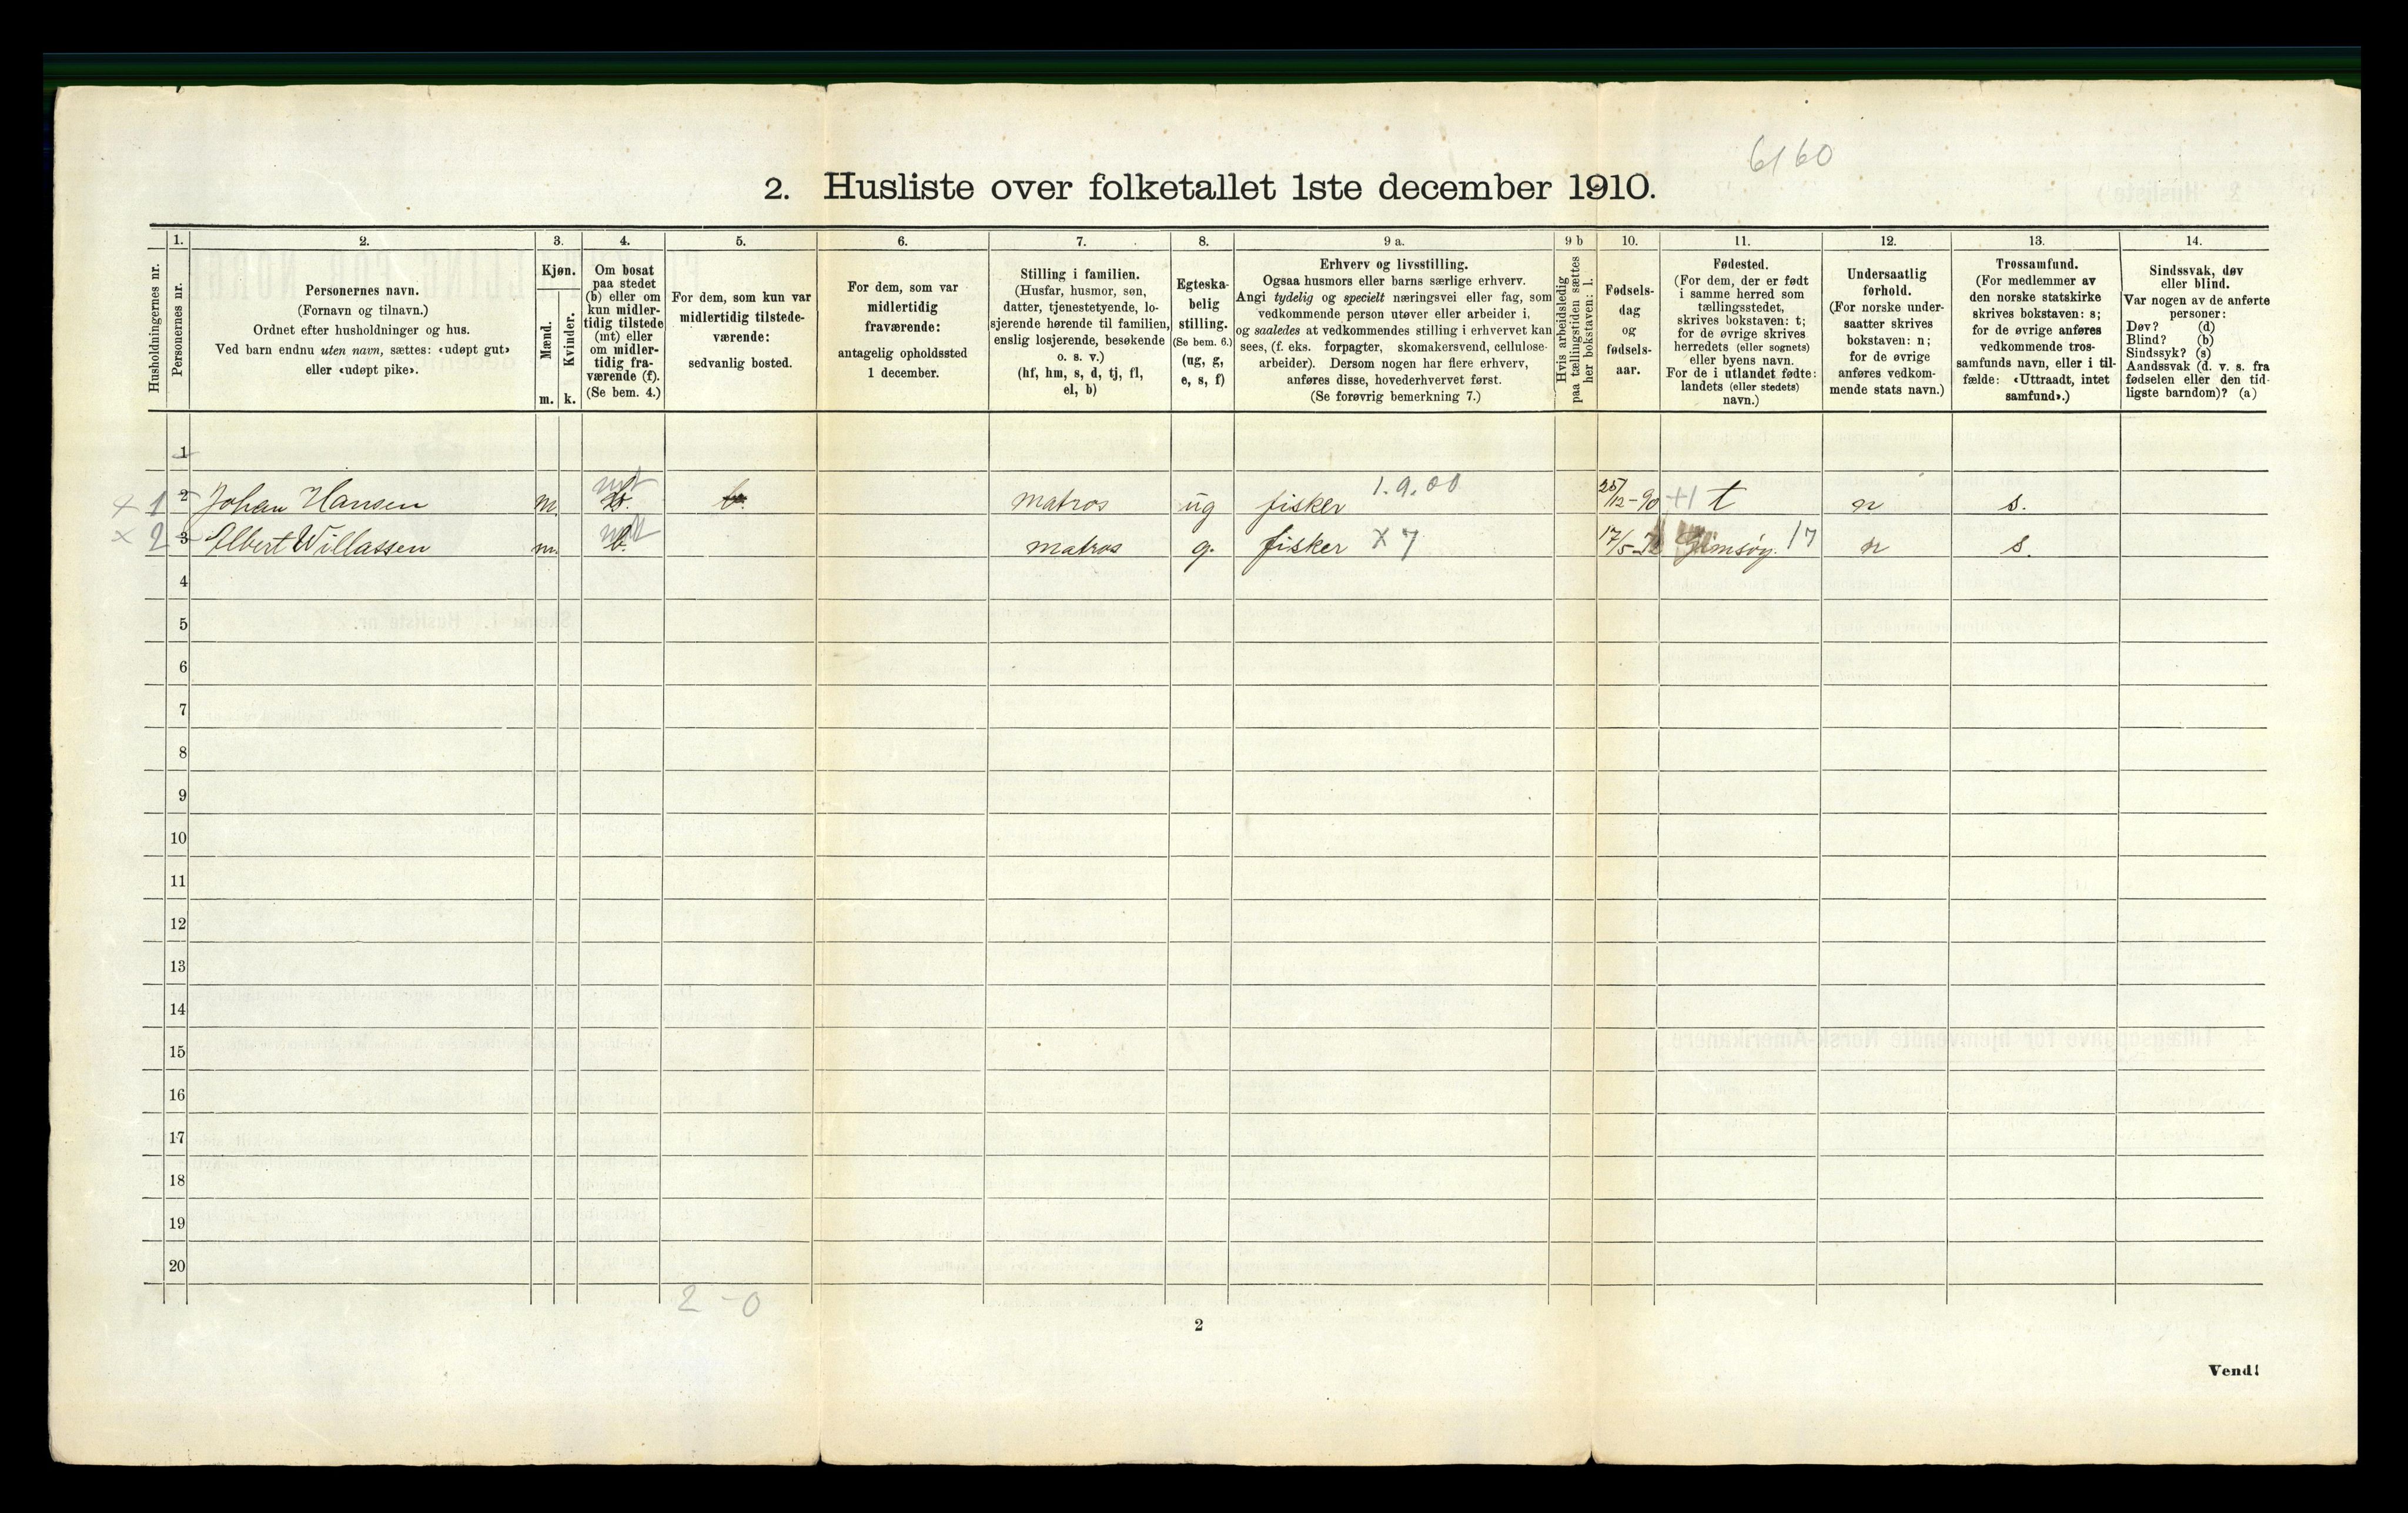 6160
2. Husliste over folketallet 1ste december 1910.
1. 2. 3. 4. 5. 6. 7. 8. 9 a. 9 b 10. 11. 12. 13. 14.
Husholdningernes nr.
Personernes nr.
Personernes navn.
(Fornavn og tilnavn.)
Ordnet efter husholdninger og hus.
Ved barn endnu uten navn, sættes: «udøpt gut»
eller «udøpt pike».
Kjøn.
Mænd.
Kvinder.
m. k.
Om bosat
paa stedet
(b) eller om
kun midler-
tidig tilstede
(mt) eller
om midler-
tidig fra-
værende (f).
(Se bem. 4.)
For dem, som kun var
midlertidig tilstede-
værende:
sedvanlig bosted.
For dem, som var
midlertidig
fraværende:
antagelig opholdssted
1 december.
Stilling i familien.
(Husfar, husmor, søn,
datter, tjenestetyende, lo-
sjerende hørende til familien,
enslig losjerende, besøkende
o. s. v.)
(hf, hm, s, d, tj, fl,
el, b)
Egteska-
belig
stilling.
(Se bem. 6.)
(ug, g,
e, s, f)
Erhverv og livsstilling.
Ogsaa husmors eller barns særlige erhverv.
Angi tydelig og specielt næringsvei eller fag, som
vedkommende person utøver eller arbeider i,
og saaledes at vedkommendes stilling i erhvervet kan
sees, (f. eks. forpagter, skomakersvend, cellulose-
arbeider). Dersom nogen har flere erhverv,
anføres disse, hovederhvervet først.
(Se forøvrig bemerkning 7.)
Hvis arbeidsledig
paa tællingstiden sættes
her bokstaven: l.
Fødsels-
dag
og
fødsels-
aar.
Fødested.
(For dem, der er født
i samme herred som
tællingsstedet,
skrives bokstaven: t;
for de øvrige skrives
herredets (eller sognets)
eller byens navn.
For de i utlandet fødte:
landets (eller stedets)
navn.)
Undersaatlig
forhold.
(For norske under-
saatter skrives
bokstaven: n;
for de øvrige
anføres vedkom-
mende stats navn.)
Trossamfund.
(For medlemmer av
den norske statskirke
skrives bokstaven: s;
for de øvrige anføres
vedkommende tros-
samfunds navn, eller i til-
fælde: «Uttraadt, intet
samfund».)
Sindssvak, døv
eller blind.
Var nogen av de anførte
personer:
Døv? (d)
Blind? (b)
Sindssyk? (s)
Aandssvak (d. v. s. fra
fødselen eller den tid-
ligste barndom)? (a)
1
+ 1 2 Johan Hansen m. mt b. b. matros ug fisker 1.9.00 25/12-90 +1 t n s.
× 2 3 Elbert Willassen m. mt b. matros g. fisker × 7 17/5 Gimsøy. 17 n s.
4
5
6
7
8
9
10
11
12
13
14
15
16
17
18
19
20
2 - 0
2
Vend!